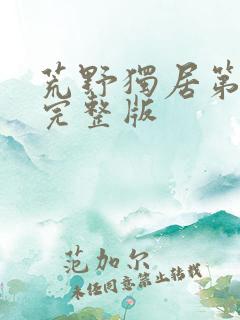 荒野獨居第
完整版
范加尔
未经同意禁止转载